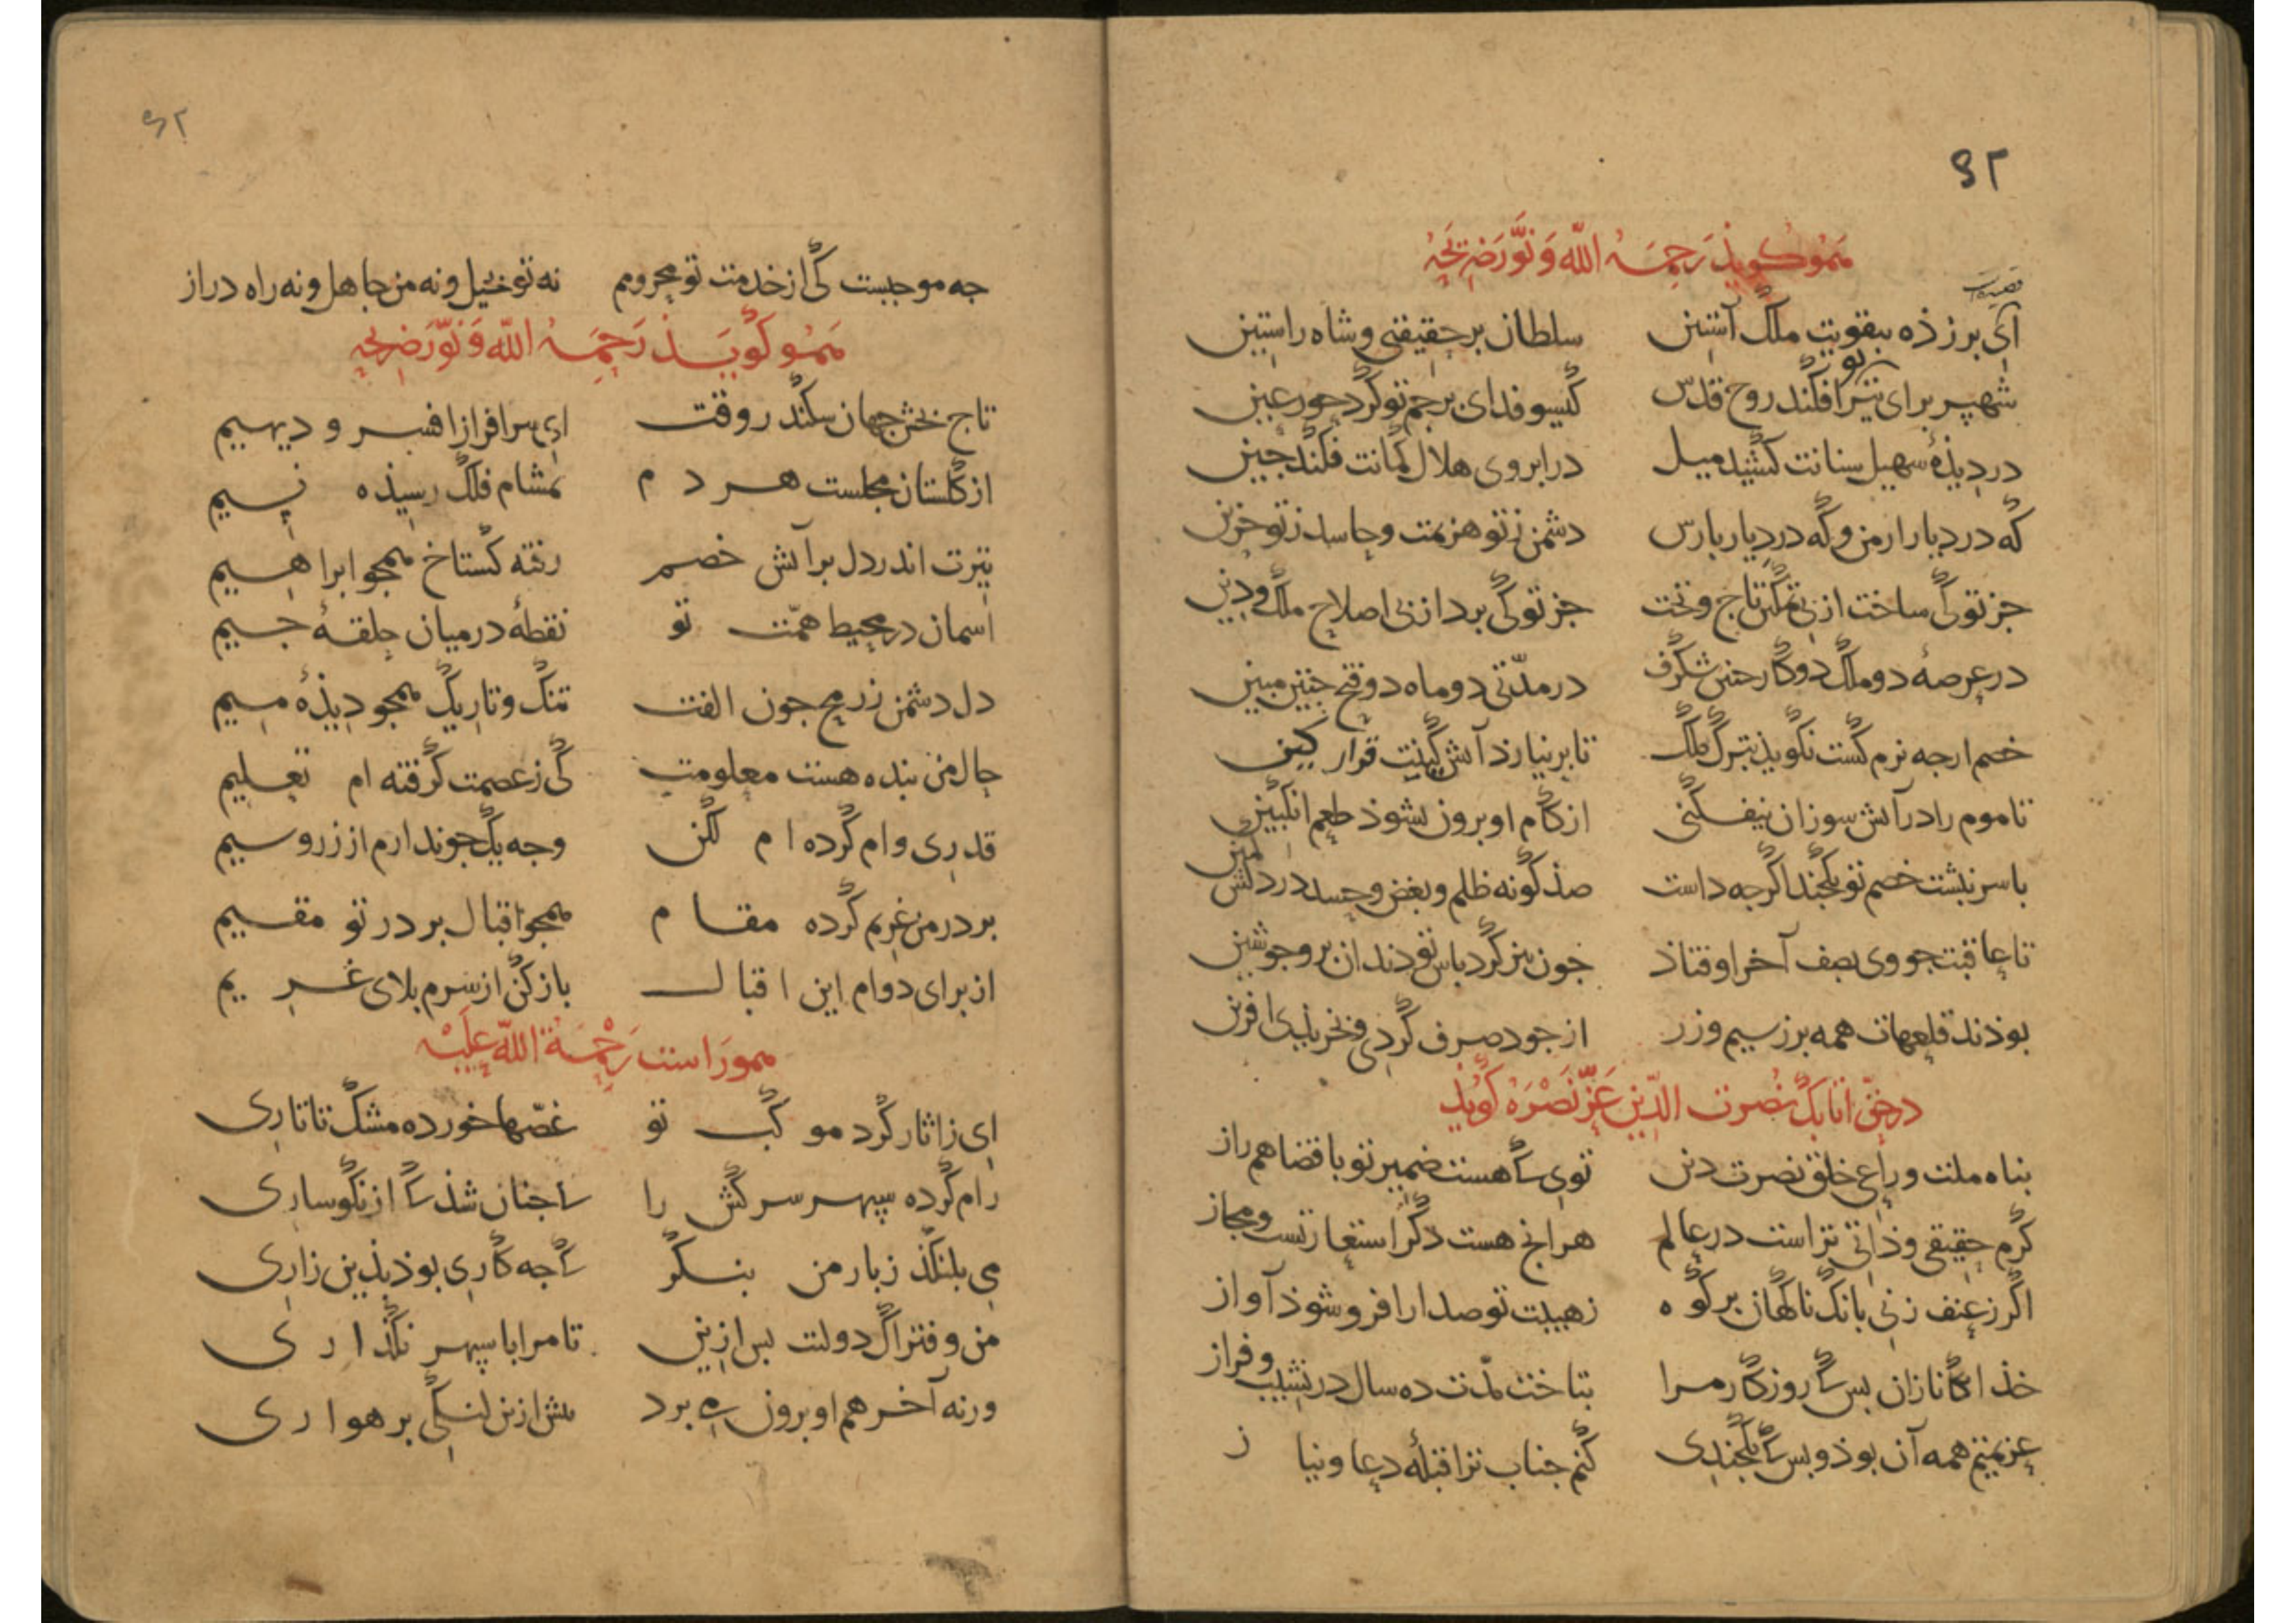 ۹۲
هموگویذ رحمه الله و نوّر ضریحه
قصیده
ای برزذه بتقویت ملک آستین سلطان برحقیقتی و شاه راستین
شهپر برای تیر تو افکند روح قدس گیسو فدای برجم تو کرد حور عین
در دیذهٔ سهیل سنانت کشید میل در ابروی هلال کمانت فکند جین
که در دیار ارمن و که در دیار بارس دشمن ز تو هزیمت و حاسد ز تو حزین
جز تو کی ساخت از بی تمکین تاج و تخت جز تو کی برد از بی اصلاح ملک و دین
در عرصهٔ دو ملک دو کار جنین شکرف در مدّتی دو ماه دو فتح جنین مبین
خصم ارجه نرم کشت نکویذ بترک ملک تا بر نیارذ آتش کینت قرار کین
تا موم را در آتش سوزان نیفکنی از کام او برون نشوذ طعم انکبین
با سر نبشت خصم تو بکجند اکرجه داست صذ کونه ظلم و بغض و حسد در دلش کمین
تا عاقبت جو وی بصف آخر اوفتاذ جون تیز کرد باس تو دندان برو جو شین
بوذند قلعهات همه بر ز سیم و زر از جود صرف کردی و فخر بلیدی افرین
در حقّ اتابک نصرت الدّین عزّ نصره گویذ
بناه ملت و راعی خلق نصرت دین توی ک هست ضمیر تو با قضا هم راز
کرم حقیقی و ذاتی تراست در عالم هر انج هست دکر استعارتست و مجاز
اکر ز عنف زنی بانک ناکهان بر کوه ز هیبت تو صدا را فرو شوذ آواز
خذا کانا زان بس ک روزکار مرا بتاخت مدّت ده سال در نشیب و فراز
عزیمتم همه آن بوذ و بس ک یکجندی کنم جناب ترا قبلهٔ دعا و نیاز
۶۲
جه موجبست کی از خدمت تو محرومم نه تو بخیل و نه من جاهل و نه راه دراز
هموگویذ رحمه الله و نوّر ضریحه
تاج بخش جهان سکندر وقت ای سرافراز افسر و دیهیم
از کلستان مجلست هر دم بمشام فلک رسیذه نسیم
تیرت اندر دل بر آتش خصم رفته کستاخ همجو ابراهیم
آسمان در محیط همّت تو نقطهٔ در میان حلقهٔ جیم
دل دشمن ز رمح جون الفت تنک و تاریک همجو دیذهٔ میم
حال من بنده هست معلومت کی ز عصمت کرفته ام تعلیم
قدری وام کرده ام لکن وجه یک جو ندارم از زر و سیم
بر در من غریم کرده مقام همجو اقبال بر در تو مقیم
از برای دوام این اقبال باز کن از سرم بلای غریم
هموراست رحمة الله علیه
ای ز اثار کرد موکب تو غصّها خورده مشک تاتاری
رام کرده سپهر سرکش را ک جنان شذ ک از نکوساری
می بلنکذ ز بار من بنکر ک جه کاری بوذ بذین زاری
من و فتراک دولت بس ازین تا مرا با سپهر نکذاری
ورنه آخر هم او برون می برد بیش ازین لنکی برهواری